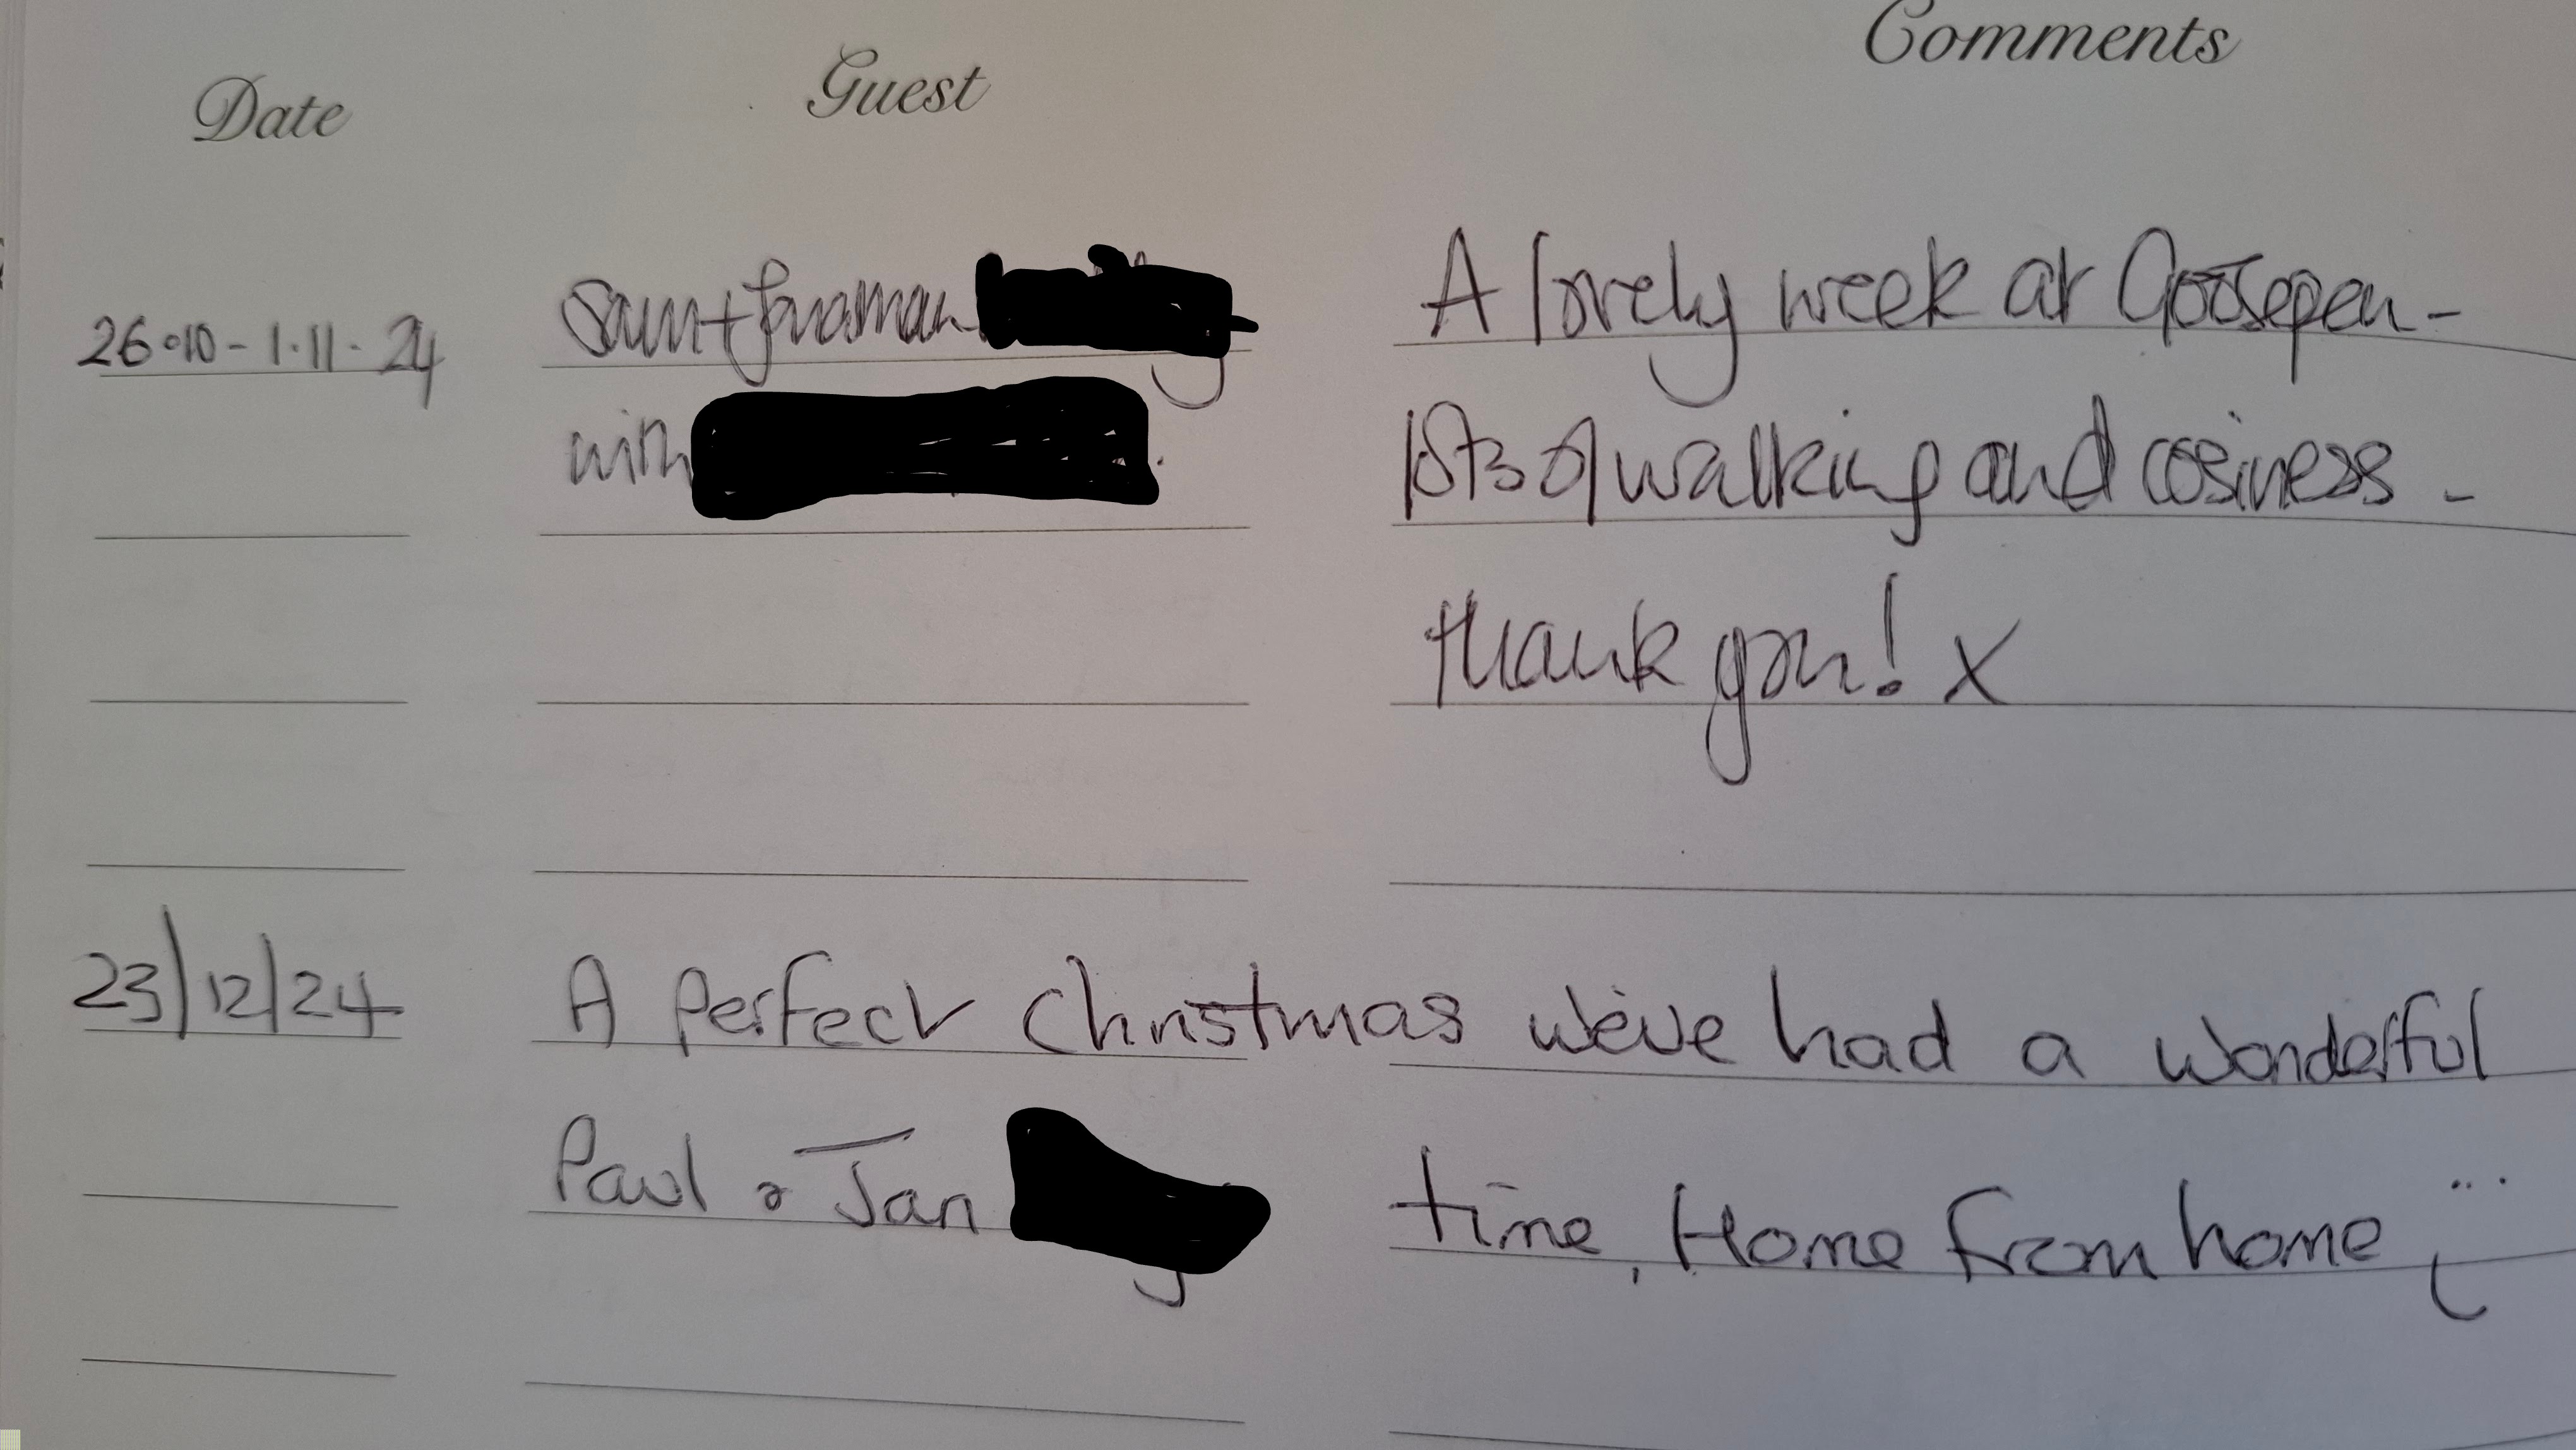 Date Guest Comments
26.10 - 1.11.24 Sam + A lovely week at Goosepen -
with lots of walking and cosiness -
thank you! x
23/12/24 A Perfect Christmas we've had a wonderful
Paul & Jan time, Home from home